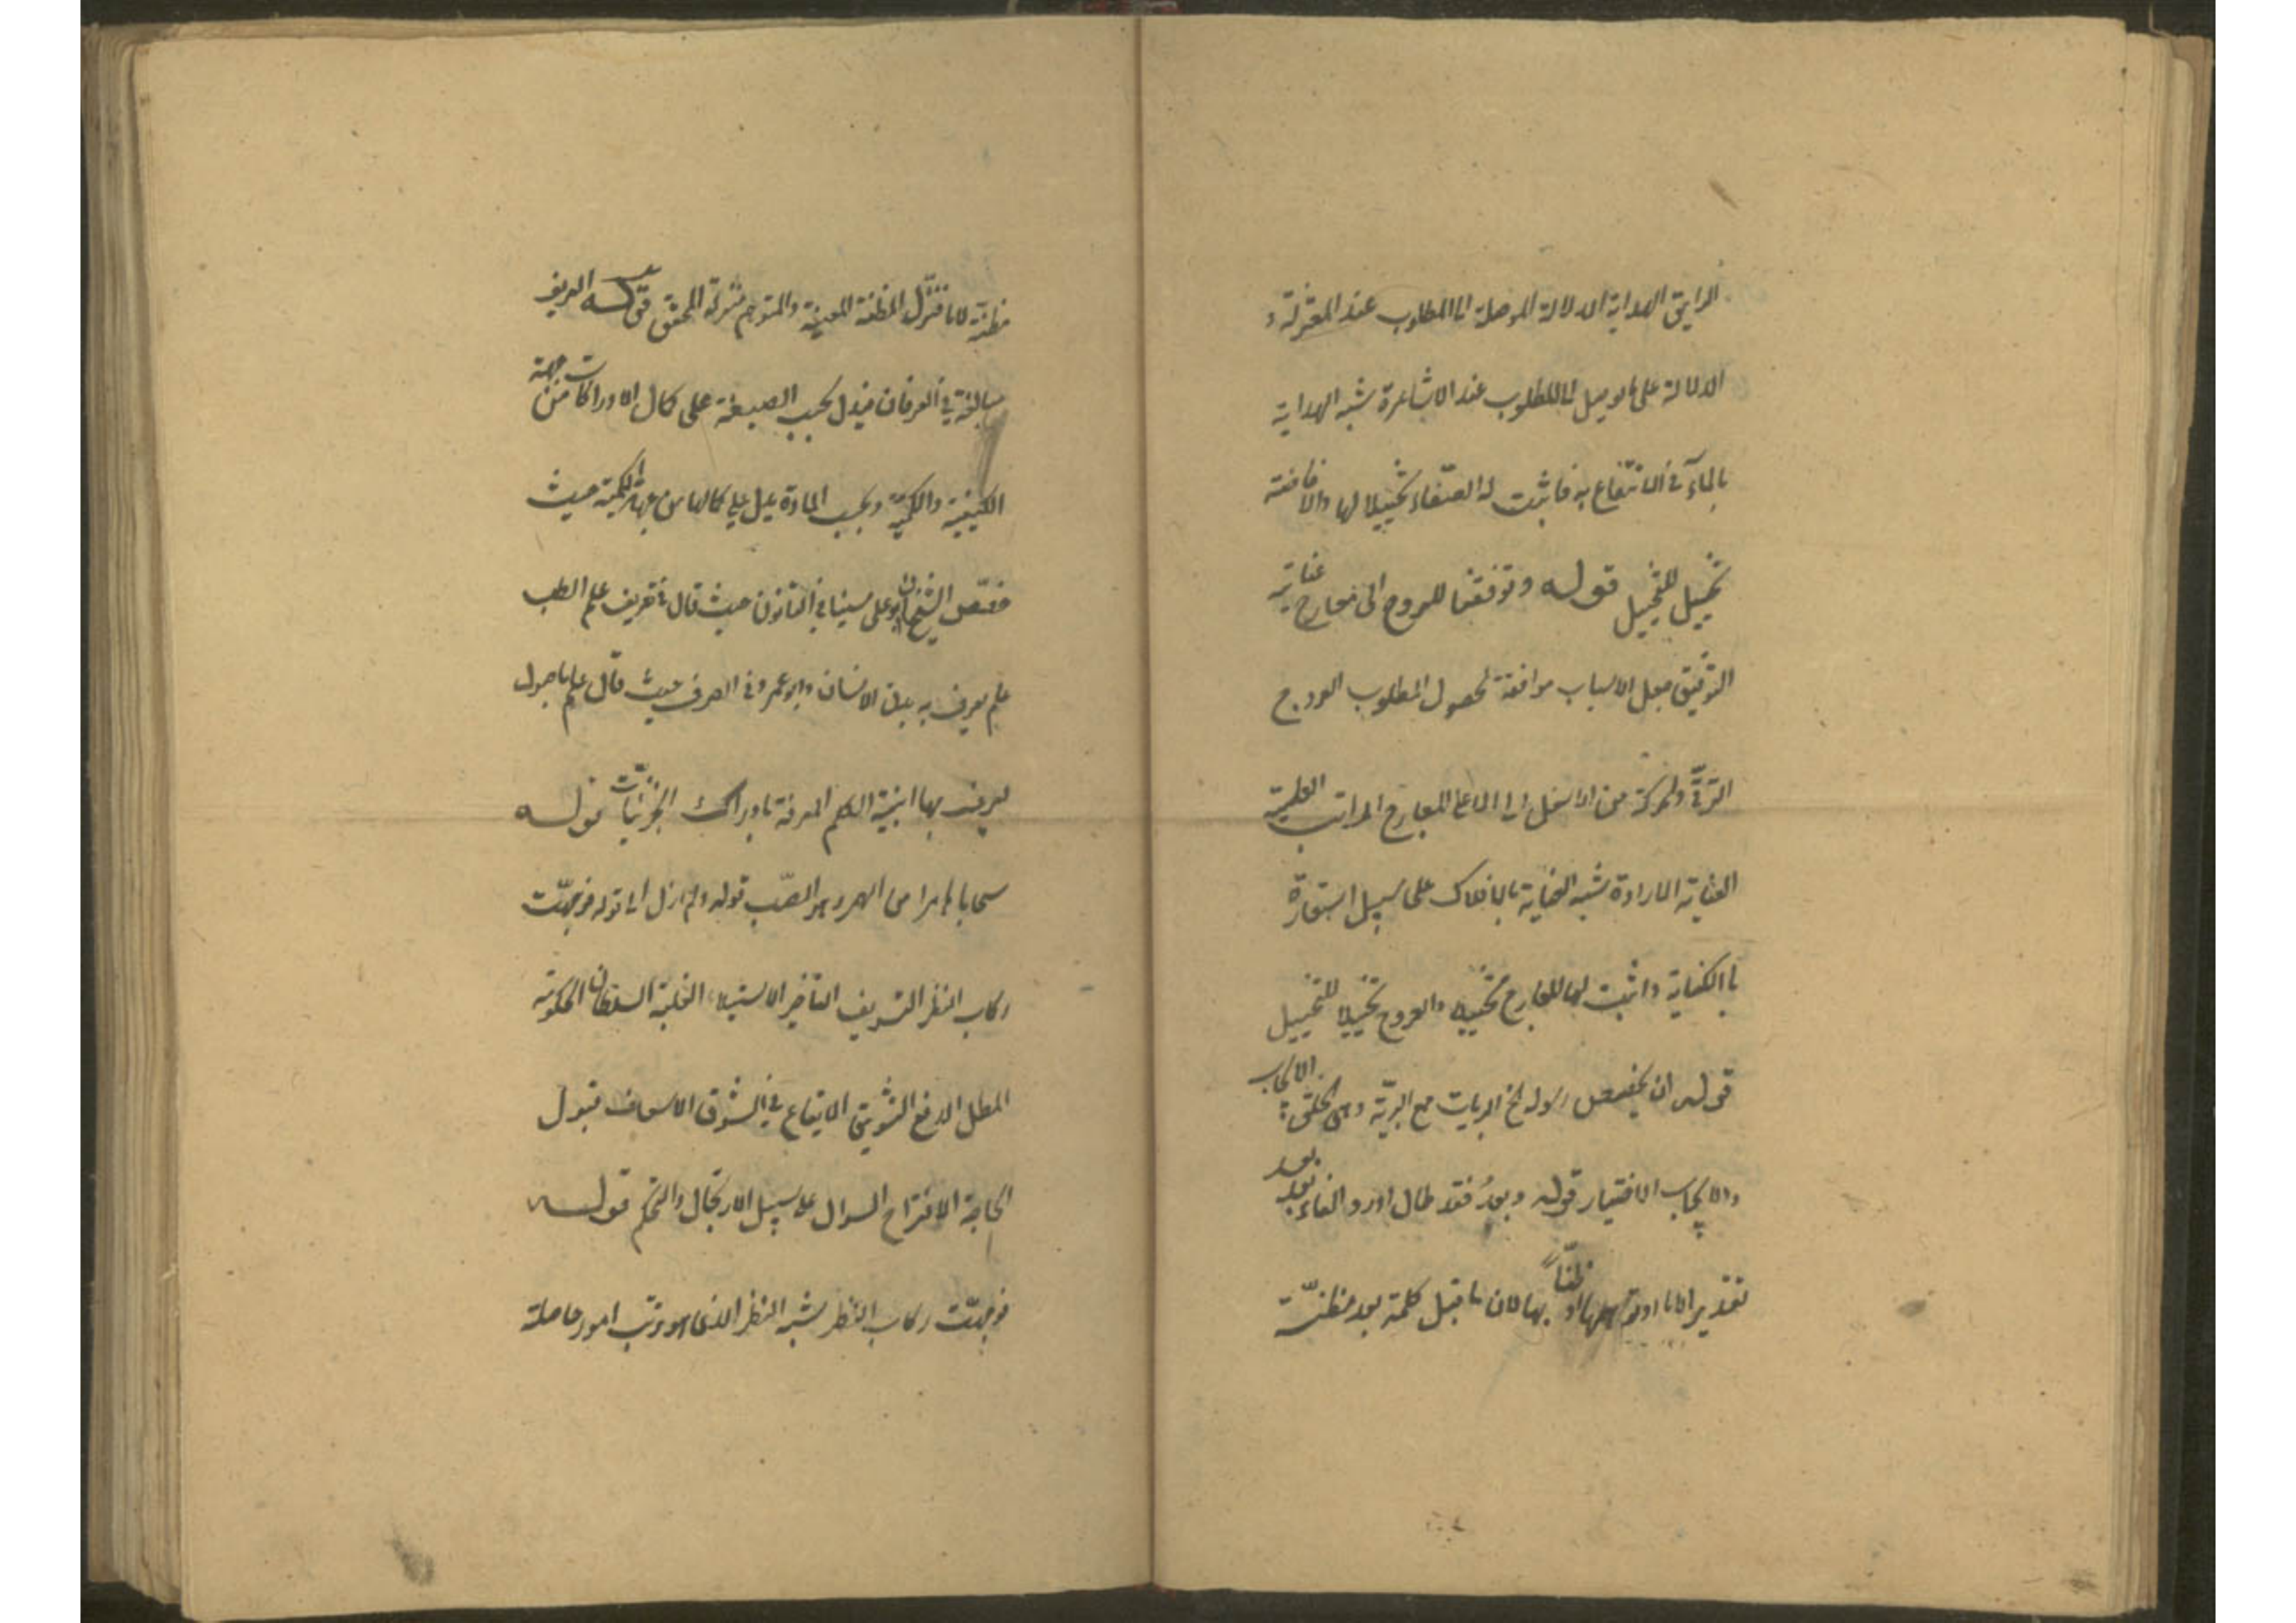 الرايق الهداية الدلالة الموصلة الى المطلوب عند المعتزلة و
الدلالة على ما يوصل الى المطلوب عند الاشاعرة شبه الهداية
بالماء في الانتفاع به فاثبت له الصفاء تخييلا لها والاضافة
تخييل للتخييل قوله وتوفقنا للعروج الى معارج عنايته
التوفيق جعل الاسباب موافقة لحصول المطلوب العروج
الترقي والحركة من الاسفل الى الاعلى المعارج المراتب العلية
العناية الارادة شبه العناية بالافلاك على سبيل استعارة
بالكناية واثبت لها المعارج تخييلا والعروج تخييلا للتخييل
قوله ان يخصص رسوله الخ البريات جمع البرية وهي الخلق الايجاب
والايجاب الاختيار قوله وبعد فقد طال اورد الفاء بعد بعد
تقدير اما او توهمها او ظنا بها لان ما قبل كلمة بعد مظنة
مظنة لاما فنزل المظنة المعينة والمتوهم منزلة المحقق قوله العريف
مبالغة في العرفان فيدل بحسب الصيغة على كمال الادراكات من جهة
الكيفية والكمية وبحسب المادة يدل على كمالها من جهة الكمية حيث
خصص الشيخان ابو علي سينا في القانون حيث قال في تعريف علم الطب
علم يعرف به بدن الانسان وابو عمرو في الصرف حيث قال علم باصول
يعرف بها ابنية الكلم المعرفة بادراك الجزئيات قوله
سحابا هامرا من الهمر وهو الصب قوله ولم ازل الى قوله فوجهت
ركاب النظر التسويف التأخير الاستيلاء الغلبة السلطان الحكومة
المطل الدفع التشويق الايقاع في الشوق الاسعاف قبول
الحاجة الاقتراح السوال على سبيل الارتجال والتحكم قوله
فوجهت ركاب النظر شبه النظر الذي هو ترتب امور حاصلة